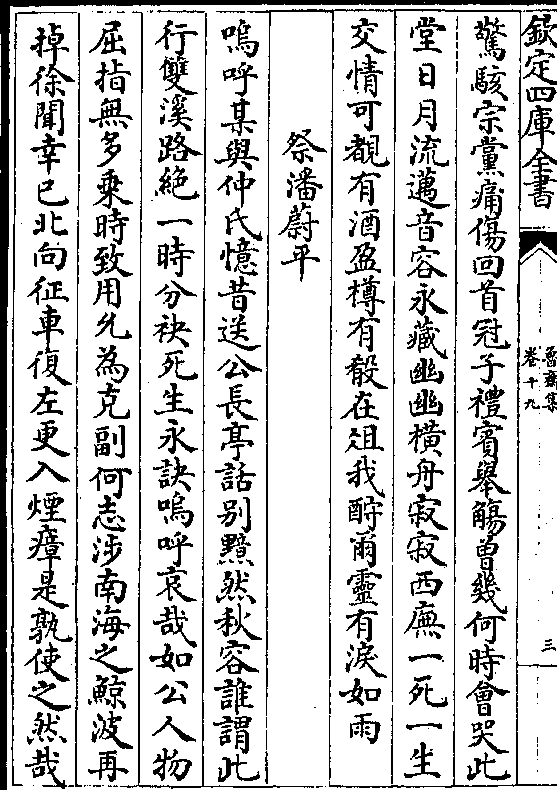 欽定四庫全書
魯齋集
卷十九
三
驚駭宗黨痛傷回首冠子禮賓舉觴曾幾何時會哭此
堂日月流邁音容永藏幽幽橫舟寂寂西廡一死一生
交情可覩有酒盈樽有殽在俎我酹爾靈有淚如雨
祭潘蔚平
嗚呼某與仲氏憶昔送公長亭話别黯然秋容誰謂此
行雙溪路絶一時分袂死生永訣嗚呼哀哉如公人物
屈指無多乗時致用允為克副何志涉南海之鯨波再
掉徐聞幸已北向征車復左更入煙瘴是孰使之然哉